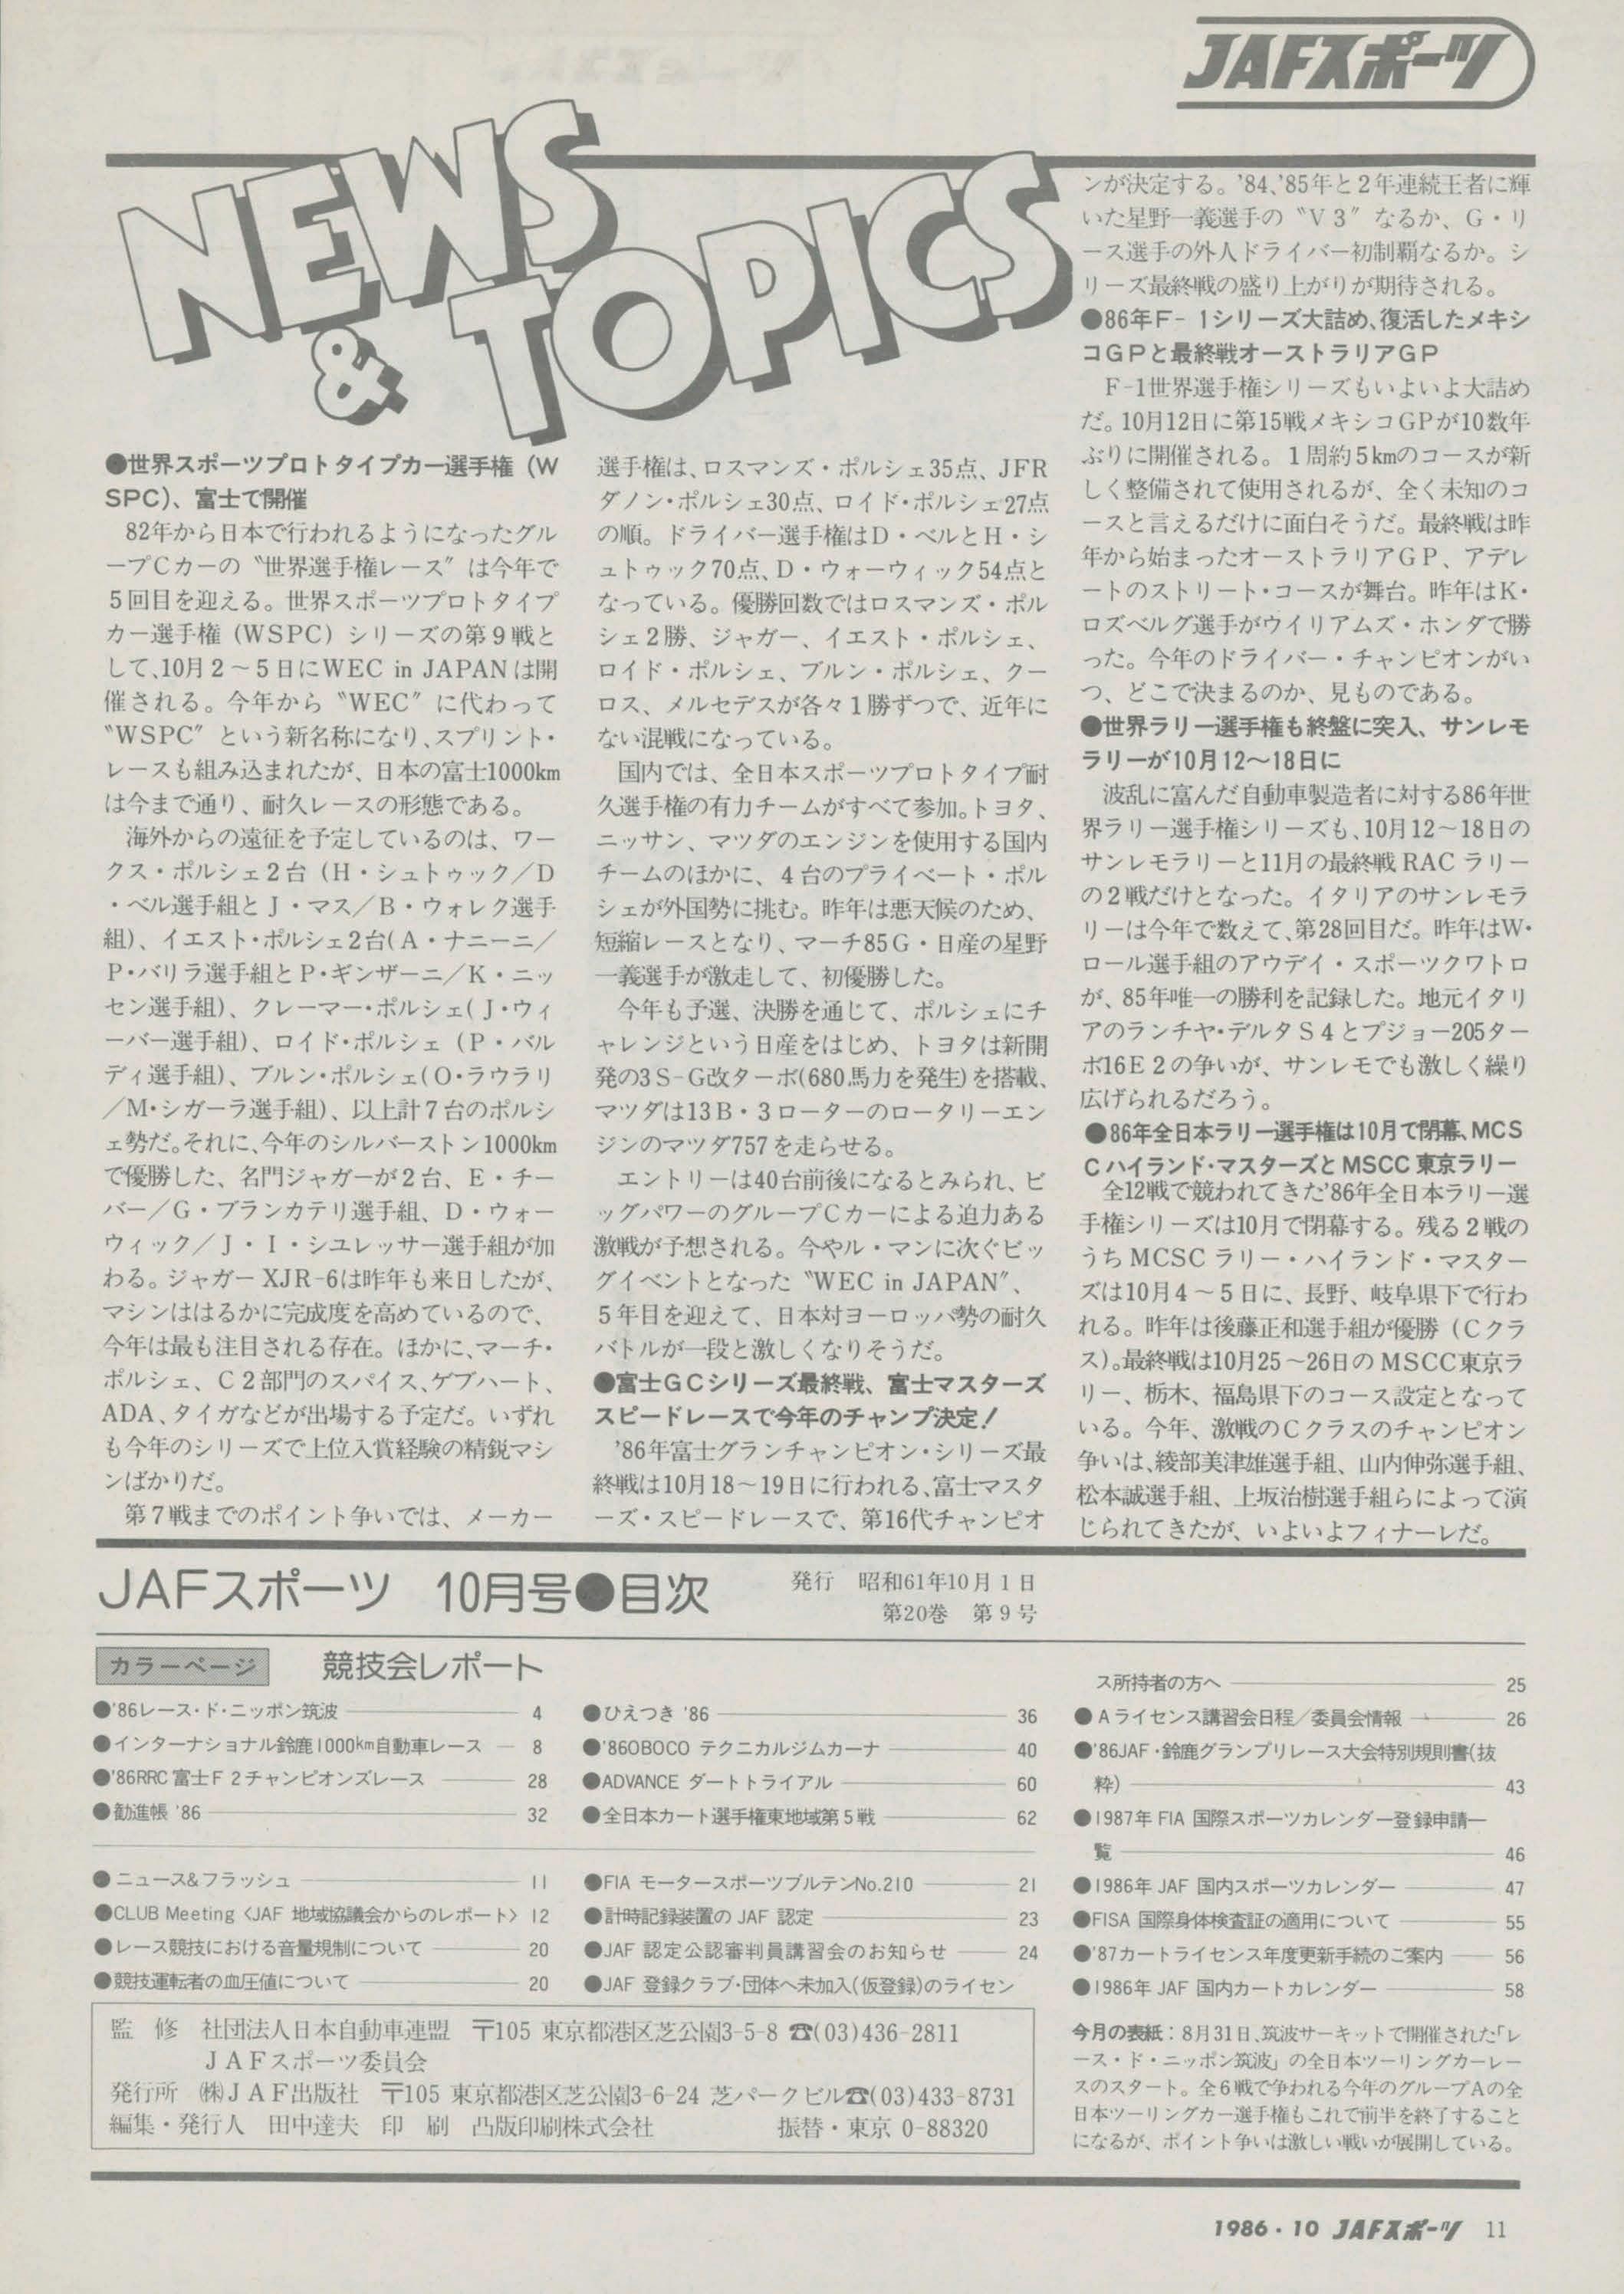 JAFスポーツ
NEWS
& TOPICS
●世界スポーツプロトタイプカー選手権（W
SPC）、富士で開催
82年から日本で行われるようになったグル
ープCカーの〝世界選手権レース〟は今年で
5回目を迎える。世界スポーツプロトタイプ
カー選手権（WSPC）シリーズの第9戦と
して、10月2～5日にWEC in JAPANは開
催される。今年から〝WEC〟に代わって
〝WSPC〟という新名称になり、スプリント・
レースも組み込まれたが、日本の富士1000km
は今まで通り、耐久レースの形態である。
海外からの遠征を予定しているのは、ワー
クス・ポルシェ2台（H・シュトゥック／D
・ベル選手組とJ・マス／B・ウォレク選手
組）、イエスト・ポルシェ2台（A・ナニーニ／
P・バリラ選手組とP・ギンザーニ／K・ニッ
セン選手組）、クレーマー・ポルシェ（J・ウィ
ーバー選手組）、ロイド・ポルシェ（P・バル
ディ選手組）、ブルン・ポルシェ（O・ラウラリ
／M・シガーラ選手組）、以上計7台のポルシ
ェ勢だ。それに、今年のシルバーストン1000km
で優勝した、名門ジャガーが2台、E・チー
バー／G・ブランカテリ選手組、D・ウォー
ウィック／J・I・シユレッサー選手組が加
わる。ジャガーXJR-6は昨年も来日したが、
マシンははるかに完成度を高めているので、
今年は最も注目される存在。ほかに、マーチ・
ポルシェ、C2部門のスパイス、ゲブハート、
ADA、タイガなどが出場する予定だ。いずれ
も今年のシリーズで上位入賞経験の精鋭マシ
ンばかりだ。
第7戦までのポイント争いでは、メーカー
選手権は、ロスマンズ・ポルシェ35点、JFR
ダノン・ポルシェ30点、ロイド・ポルシェ27点
の順。ドライバー選手権はD・ベルとH・シ
ュトゥック70点、D・ウォーウィック54点と
なっている。優勝回数ではロスマンズ・ポル
シェ2勝、ジャガー、イエスト・ポルシェ、
ロイド・ポルシェ、ブルン・ポルシェ、クー
ロス、メルセデスが各々1勝ずつで、近年に
ない混戦になっている。
国内では、全日本スポーツプロトタイプ耐
久選手権の有力チームがすべて参加。トヨタ、
ニッサン、マツダのエンジンを使用する国内
チームのほかに、4台のプライベート・ポル
シェが外国勢に挑む。昨年は悪天候のため、
短縮レースとなり、マーチ85G・日産の星野
一義選手が激走して、初優勝した。
今年も予選、決勝を通じて、ポルシェにチ
ャレンジという日産をはじめ、トヨタは新開
発の3S-G改ターボ（680馬力を発生）を搭載、
マツダは13B・3ローターのロータリーエン
ジンのマツダ757を走らせる。
エントリーは40台前後になるとみられ、ビ
ッグパワーのグループCカーによる迫力ある
激戦が予想される。今やル・マンに次ぐビッ
グイベントとなった〝WEC in JAPAN〟、
5年目を迎えて、日本対ヨーロッパ勢の耐久
バトルが一段と激しくなりそうだ。
●富士GCシリーズ最終戦、富士マスターズ
スピードレースで今年のチャンプ決定！
'86年富士グランチャンピオン・シリーズ最
終戦は10月18～19日に行われる、富士マスタ
ーズ・スピードレースで、第16代チャンピオ
ンが決定する。'84、'85年と2年連続王者に輝
いた星野一義選手の〝V3〟なるか、G・リ
ース選手の外人ドライバー初制覇なるか。シ
リーズ最終戦の盛り上がりが期待される。
●86年F-1シリーズ大詰め、復活したメキシ
コGPと最終戦オーストラリアGP
F-1世界選手権シリーズもいよいよ大詰め
だ。10月12日に第15戦メキシコGPが10数年
ぶりに開催される。1周約5kmのコースが新
しく整備されて使用されるが、全く未知のコ
ースと言えるだけに面白そうだ。最終戦は昨
年から始まったオーストラリアGP、アデレ
ートのストリート・コースが舞台。昨年はK・
ロズベルグ選手がウイリアムズ・ホンダで勝
った。今年のドライバー・チャンピオンがい
つ、どこで決まるのか、見ものである。
●世界ラリー選手権も終盤に突入、サンレモ
ラリーが10月12～18日に
波乱に富んだ自動車製造者に対する86年世
界ラリー選手権シリーズも、10月12～18日の
サンレモラリーと11月の最終戦RACラリー
の2戦だけとなった。イタリアのサンレモラ
リーは今年で数えて、第28回目だ。昨年はW・
ロール選手組のアウデイ・スポーツクワトロ
が、85年唯一の勝利を記録した。地元イタリ
アのランチヤ・デルタS4とプジョー205ター
ボ16E2の争いが、サンレモでも激しく繰り
広げられるだろう。
●86年全日本ラリー選手権は10月で閉幕、MCS
CハイランドマスターズとMSCC東京ラリー
全12戦で競われてきた'86年全日本ラリー選
手権シリーズは10月で閉幕する。残る2戦の
うちMCSCラリー・ハイランド・マスター
ズは10月4～5日に、長野、岐阜県下で行わ
れる。昨年は後藤正和選手組が優勝（Cクラ
ス）。最終戦は10月25～26日のMSCC東京ラ
リー、栃木、福島県下のコース設定となって
いる。今年、激戦のCクラスのチャンピオン
争いは、綾部美津雄選手組、山内伸弥選手組、
松本誠選手組、上坂治樹選手組らによって演
じられてきたが、いよいよフィナーレだ。
JAFスポーツ 10月号●目次
発行 昭和61年10月1日
第20巻 第9号
カラーページ 競技会レポート
●'86レース・ド・ニッポン筑波 4
●インターナショナル鈴鹿1000km自動車レース 8
●'86RRC富士F2チャンピオンズレース 28
●勧進帳'86 32
●ひえつき'86 36
●'86OBOCOテクニカルジムカーナ 40
●ADVANCEダートトライアル 60
●全日本カート選手権東地域第5戦 62
●ニュース&フラッシュ 11
●CLUB Meeting〈JAF地域協議会からのレポート〉12
●レース競技における音量規制について 20
●競技運転者の血圧値について 20
●FIA モータースポーツブルテンNo.210 21
●計時記録装置のJAF認定 23
●JAF認定公認審判員講習会のお知らせ 24
●JAF登録クラブ・団体へ未加入（仮登録）のライセン
ス所持者の方へ 25
●Aライセンス講習会日程／委員会情報 26
●'86JAF・鈴鹿グランプリレース大会特別規則書（抜
粋） 43
●1987年FIA国際スポーツカレンダー登録申請一
覧 46
●1986年JAF国内スポーツカレンダー 47
●FISA国際身体検査証の適用について 55
●'87カートライセンス年度更新手続のご案内 56
●1986年JAF国内カートカレンダー 58
監 修 社団法人日本自動車連盟 〒105 東京都港区芝公園3-5-8 ☎(03)436-2811
JAFスポーツ委員会
発行所 ㈱JAF出版社 〒105 東京都港区芝公園3-6-24 芝パークビル☎(03)433-8731
編集・発行人 田中達夫 印 刷 凸版印刷株式会社 振替・東京 0-88320
今月の表紙：8月31日、筑波サーキットで開催された「レ
ース・ド・ニッポン筑波」の全日本ツーリングカーレー
スのスタート。全6戦で争われる今年のグループAの全
日本ツーリングカー選手権もこれで前半を終了すること
になるが、ポイント争いは激しい戦いが展開している。
1986・10 JAFスポーツ 11